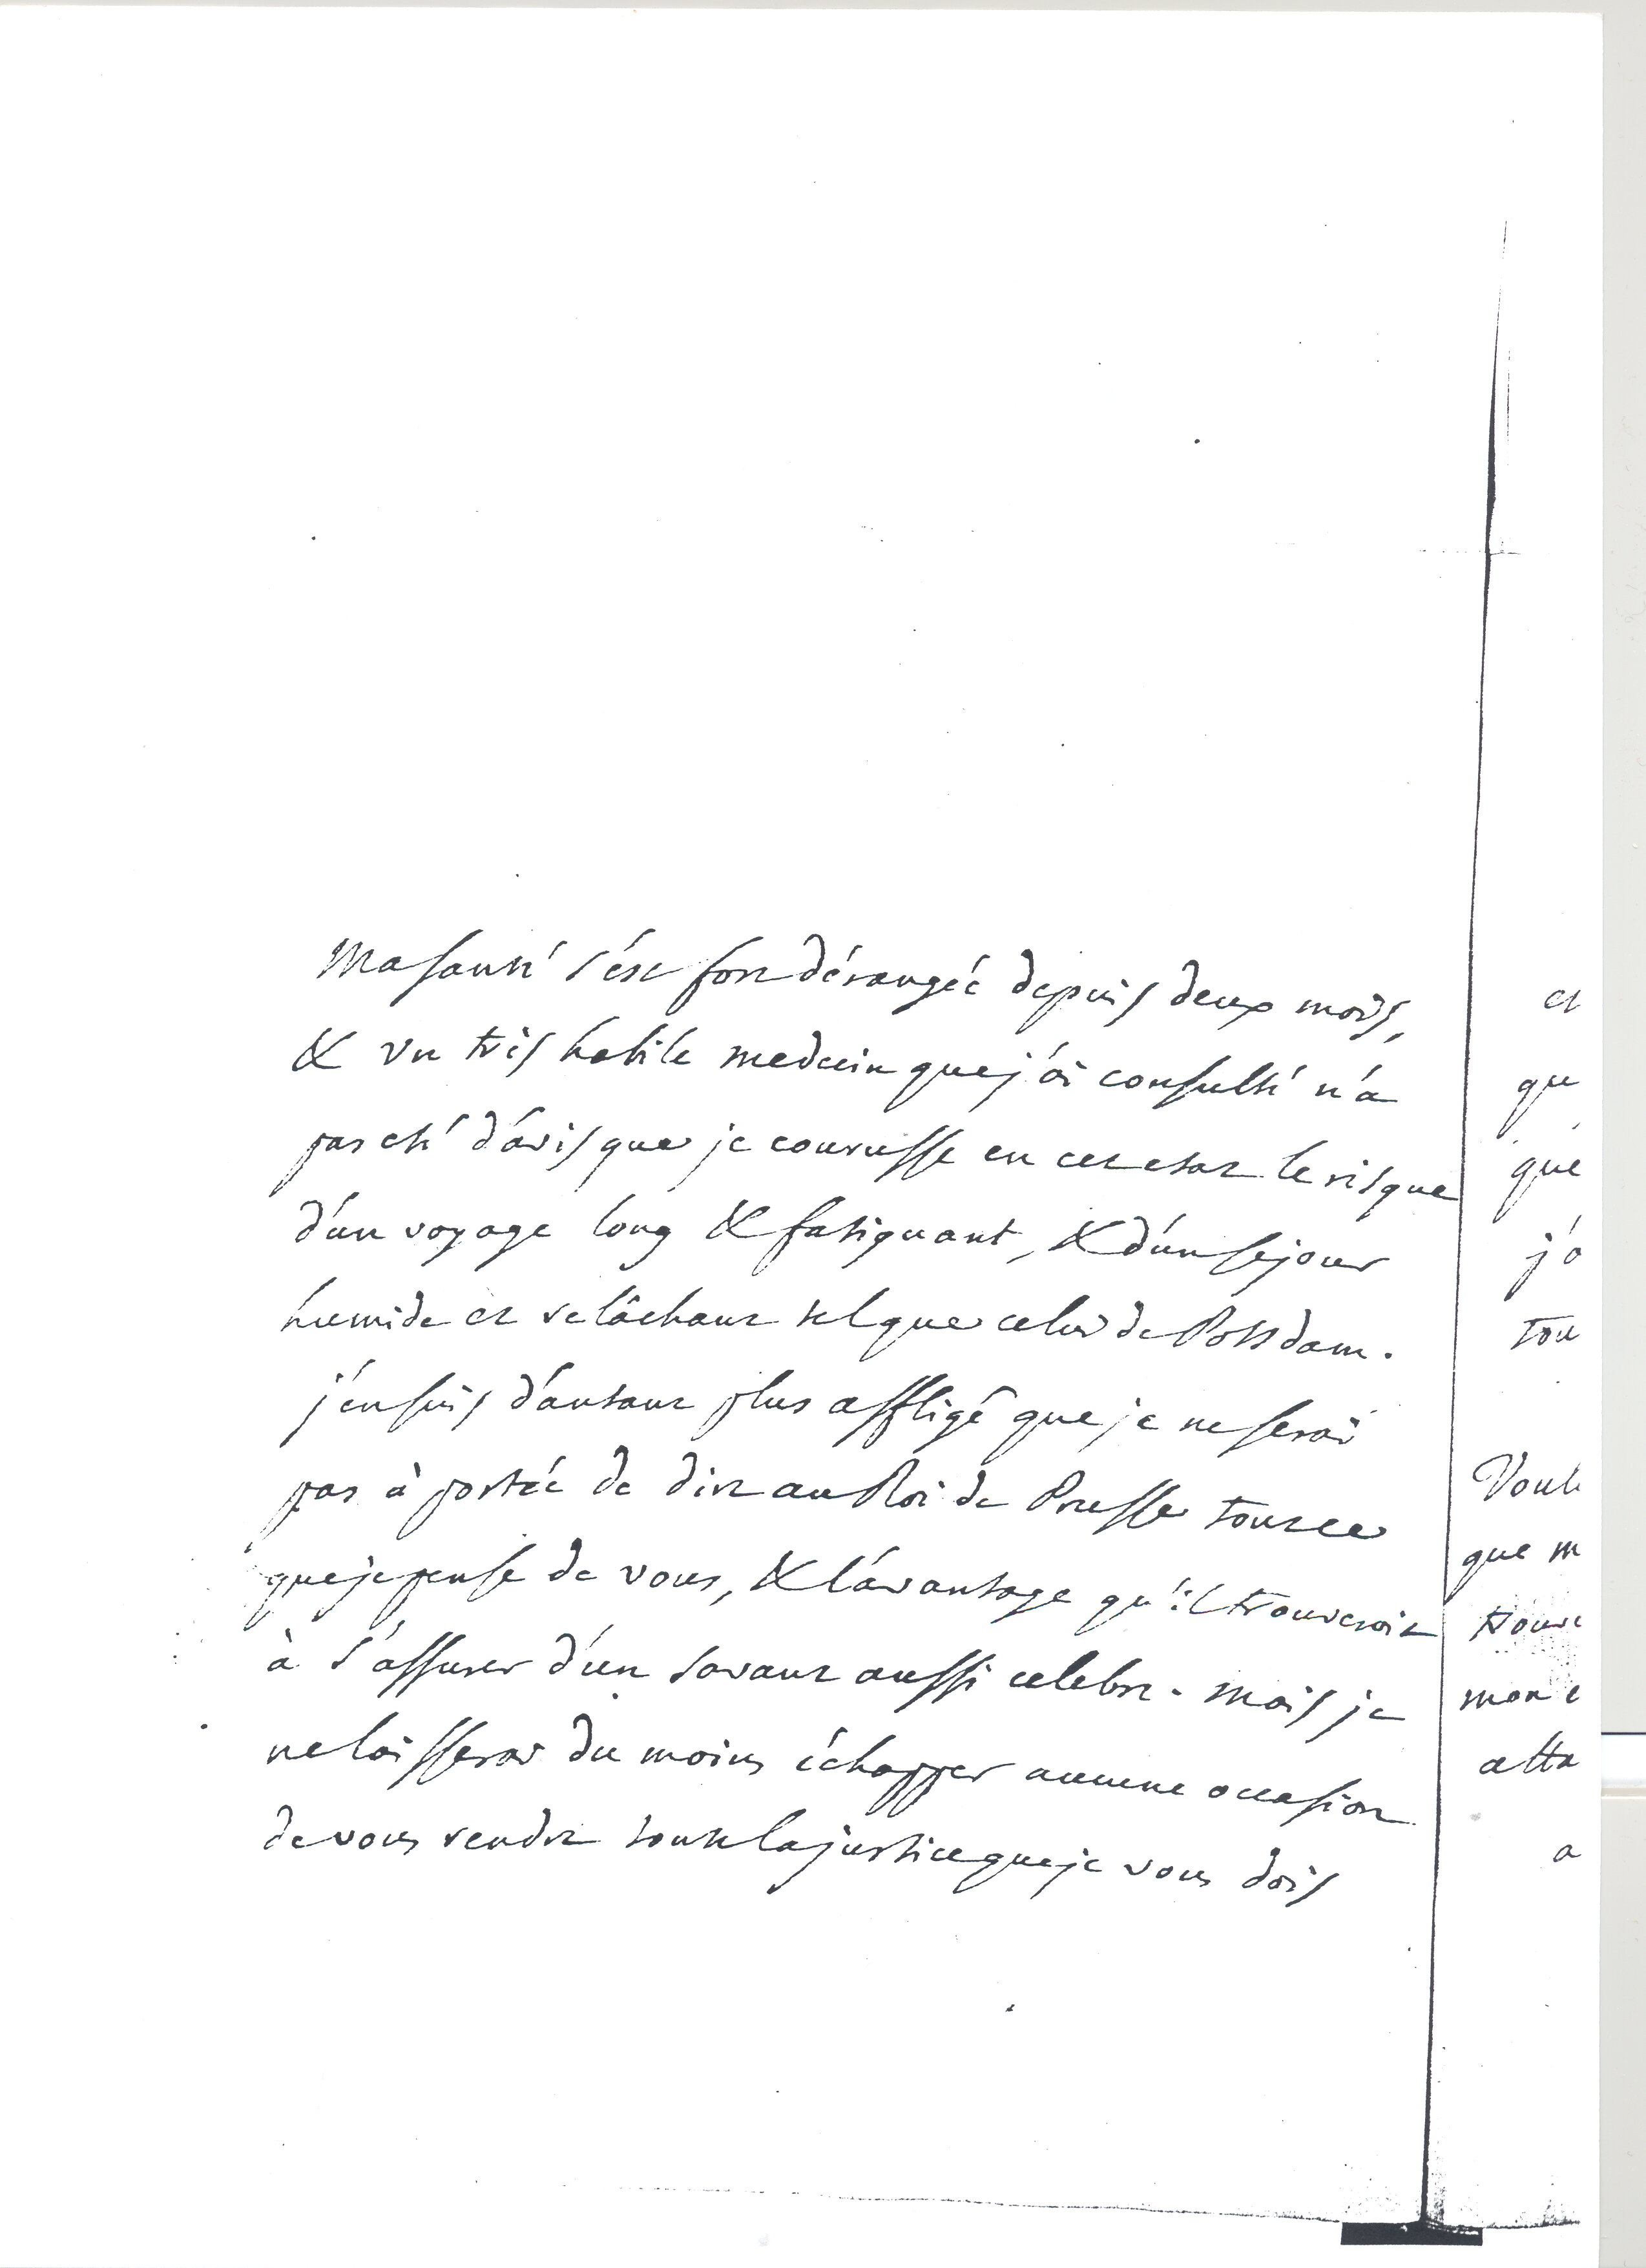 Ma santé s'est fort dérangée depuis deux mois,
& vn très habile medecin que j'ai consulté n'a
pas eté d'avis que je courusse en cet etat le risque
d'un voyage long & fatiguant, & d'un sejour
humide et relâchant tel que celui de Potsdam.
j'en suis d'autant plus affligé que je ne serai
pas à portée de dire au Roi de Prusse tout ce
que je pense de vous, & l'avantage qu'il trouveroit
à s'assurer d'un savant aussi celebre. mais je
ne laisserai du moins échapper aucune occasion
de vous rendre toute la justice que je vous dois
et
qu
que
j'a
tou
Voul
que m
trouve
mon e
atta
a